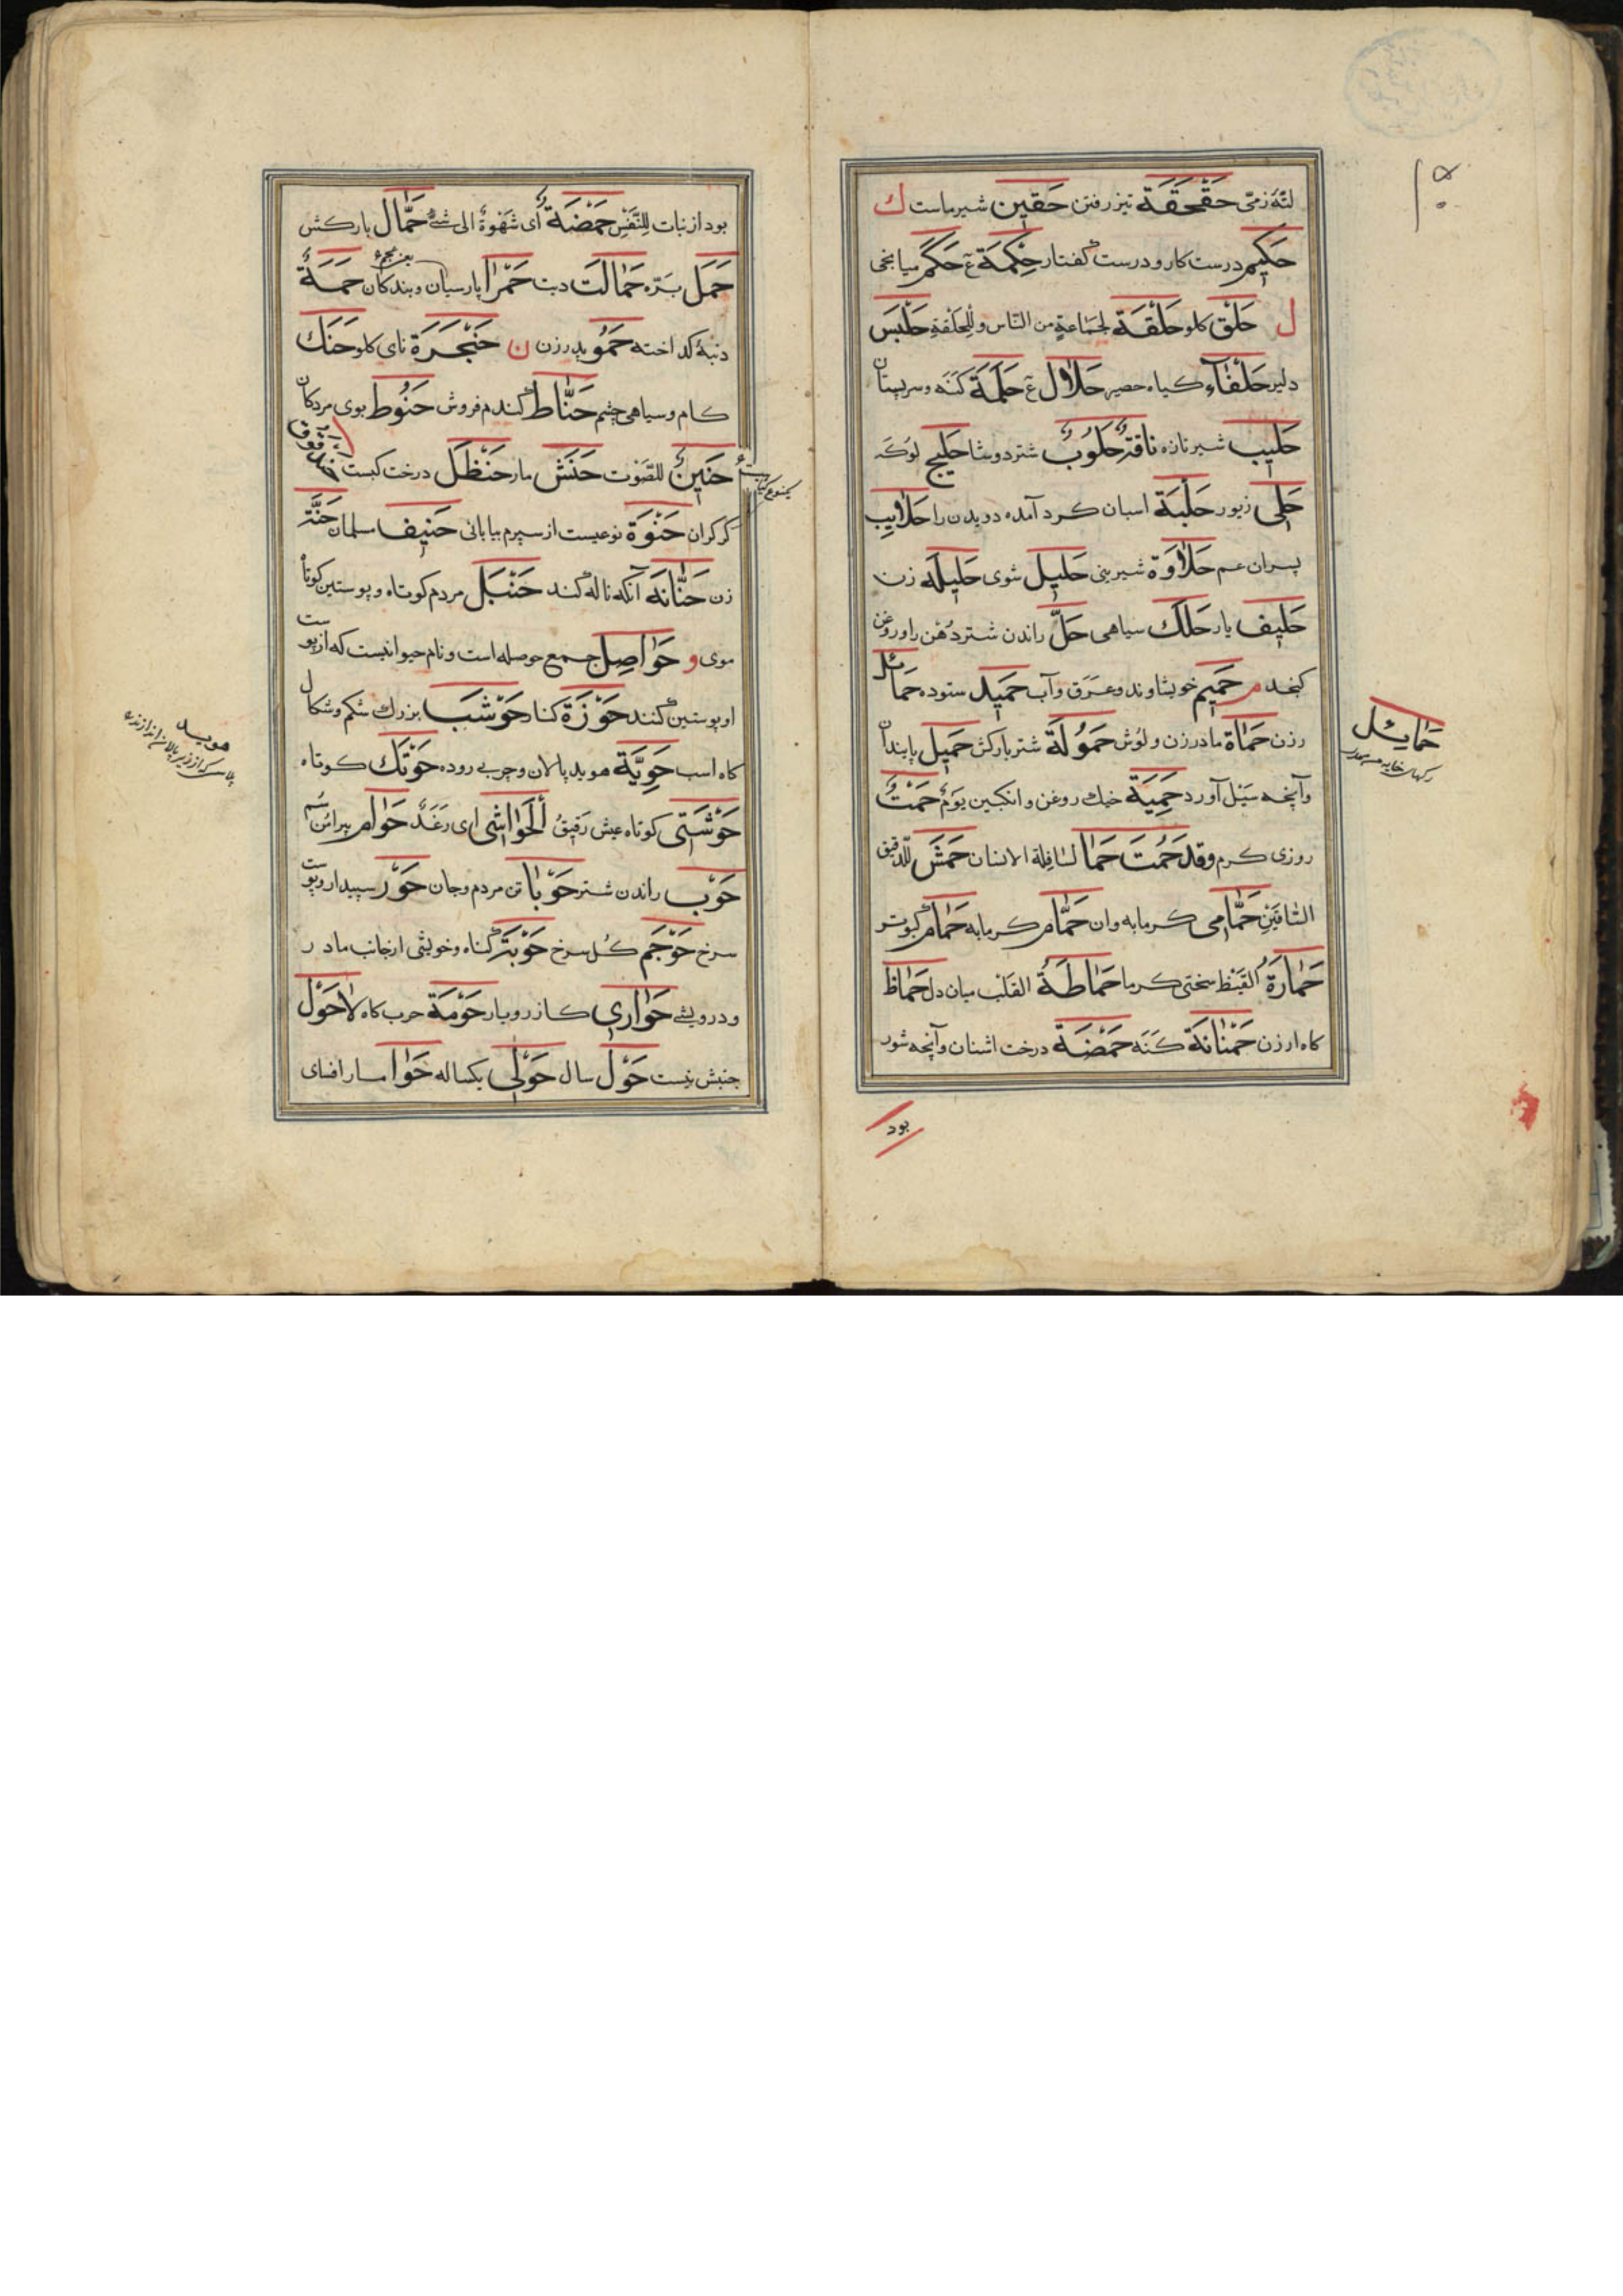 لتّه زمّی حَقْحَقَة تیز رفتن حَقین شیر ماست ك
حَکیم درست کار و درست گفتار حِکْمَة ع حَکَمْ میانجی
ل حَلْق کلو حَلْقَة لجَماعةٍ من النّاس وللحَلْقةِ حَلْبَس
دلیر حَلْفآء گیاه حصیر حَلال ع حَلَمَة کَنَه و سر پستان
حَلیب شیر تازه ناقةٌ حَلُوبٌ شتر دوشا حَلیج لوکَه
حَلْی زیور حَلْبَة اسبان کرد آمده دویدن را حَلایِب
پسران عم حَلاوَة شیرینی حَلیل شوی حَلیلَه زن
حَلیف یار حَلَك سیاهی حَلّ راندن شتر دُهْن را و روغن
کنجد م حَمیم خویشاوند و عَرَق و آب حَمید ستوده حَمائل
رزن حَماة مادر زن و لوش حَمُولَة شتر بارکش حَمیل پایندان
و آنچه سَیْل آورد حَمِیَة خیك روغن و انکبین یَومٌ حَمْتٌ
روزی کرم وقد حَمُتَ حَمَا لسَافِلَة الانسان حَمْش للدّقیق
السّاقَیْنِ حَمّامی کرمابه وان حَمّام کرمابه حَمام کبوتر
حَمارَةُ القَیْظ سختی کرما حَماطَةُ القَلب میان دل حَماظ
کاه ارزن حَمْنانَة کَنَه حَمْضَة درخت اشنان و آنچه شور
بود
حَمایل
بود از نبات لِلنَّفْسِ حَمْضَةٌ ای شَهْوَةٌ الی شیءٍ حَمّال بارکش
حَمَل بَرّه حَمالَت دیت حَمْرا پارسیان و بندکان حَمَةٌ
دنبۀ کداخته حَمُو پدر زن ن حَنْجَرَة نای کلو حَنَك
کام و سیاهی چشم حَنّاط کندم فروش حَنُوط بوی مردکان
حَنینٌ للصَّوْت حَنَش مار حَنْظَل درخت کبست
کرکران حَنْوَة نوعیست از سپرم بیابانی حَنیف مسلمان حَنَّة
زن حَنّانَه آنکه ناله کند حَنْبَل مردم کوتاه و پوستین کوتاه
موی و حَواصِل جمع حوصله است و نام حیوانیست که از پوست
او پوستین کنند حَوْزَة کنار حَوْشَب بزرك شکم و شکال
کاه اسب حَوِیَّة هوید پالان و چربی روده حَوْتَك کوتاه
حَوْشَتی کوتاه عیش رَقیقُ ألحَواشی ای رَغَدٌ حَوام پیرامن سُم
حَوْب راندن شتر حَوْبا تن مردم و جان حَوَر سپیدار و پوست
سرخ حَوْجَم کُل سرخ حَوْبَة کناه و خویشی از جانب مادر
و درویشی حَواری کازر و یار حَوْمَة حرب کاه لاحَوْل
جنبش نیست حَوْل سال حَوْلی یکساله حَوا مار افسای
هوید